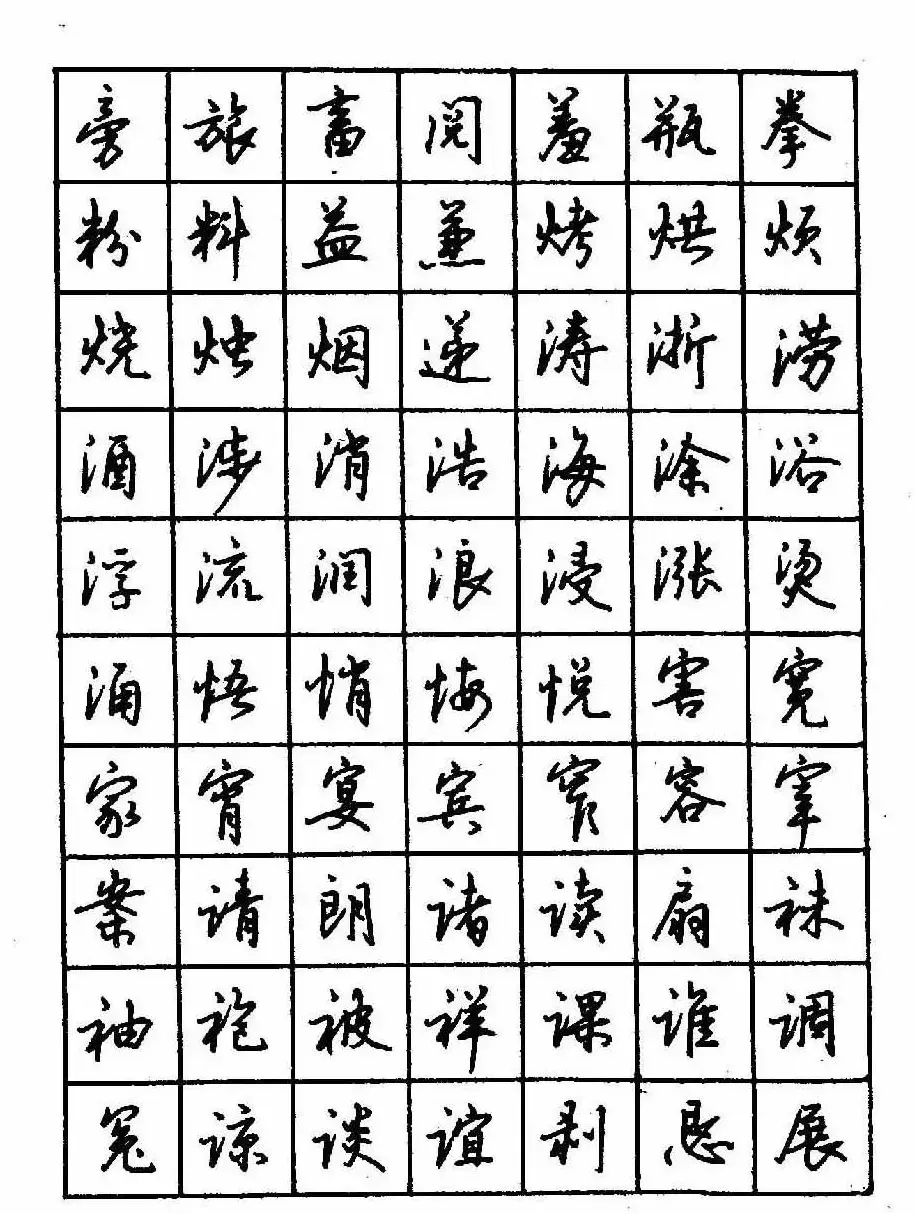 旁旅畜阅羞瓶拳
粉料益兼烤烘烦
烧烛烟递涛浙涝
酒涉消浩海涂浴
浮流润浪浸涨烫
涌悟悄悔悦害宽
家宵宴宾窄容宰
案请朗诸读扇袜
袖袍被祥课谁调
冤谅谈谊剥恳展